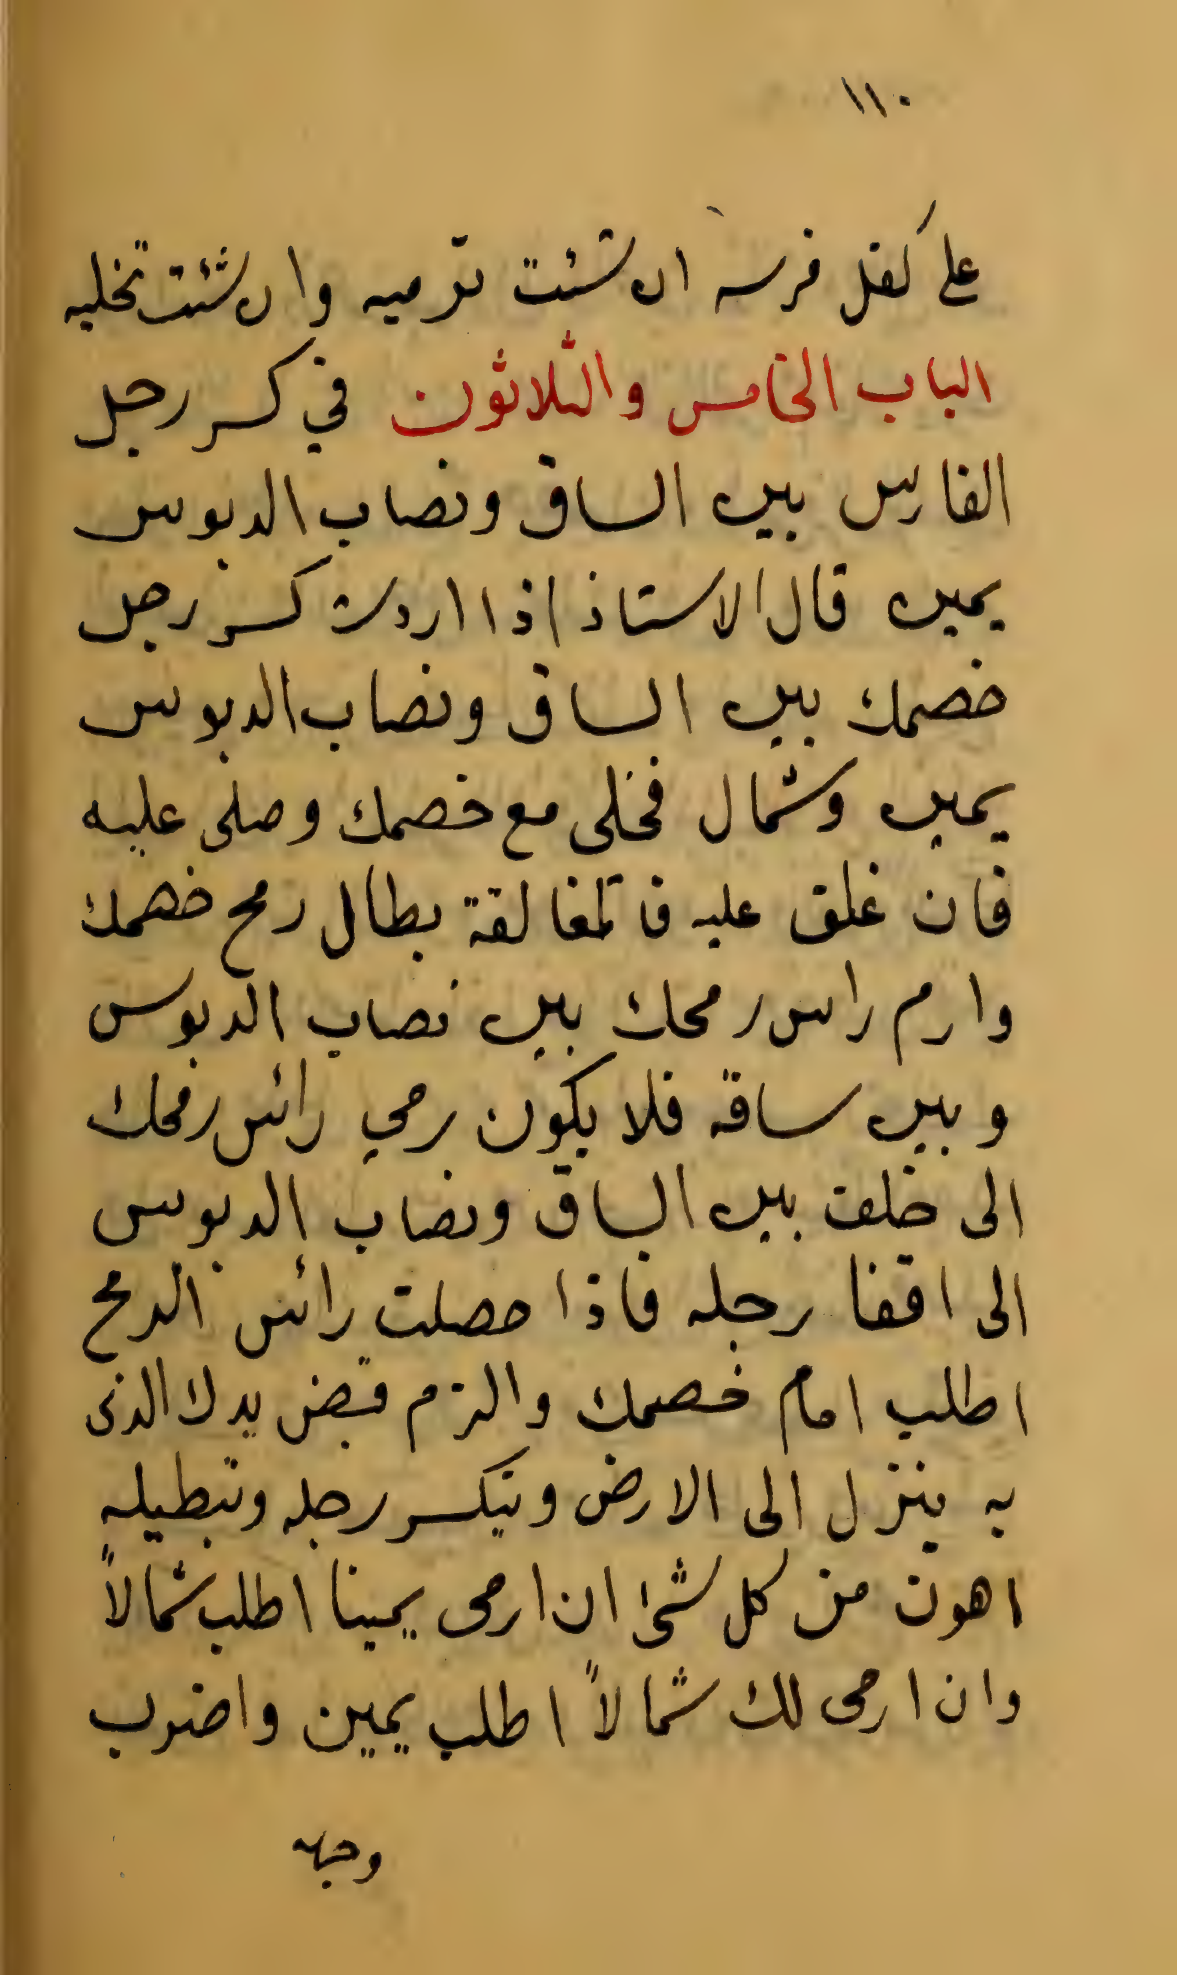 ١١٠
على كفل فرسه ان شئت ترميه وان شئت تخليه
الباب الخامس والثلاثون في كسر رجل
الفارس بين الساق ونصاب الدبوس
يمين قال الاستاذ اذا اردت كسر رجل
خصمك بين الساق ونصاب الدبوس
يمين وشمال فخلى مع خصمك وصلى عليه
فان غلق عليه فا لمغالقة بطال رمح خصمك
وارم راس رمحك بين نصاب الدبوس
وبين ساقه فلا يكون رمي رائس رمحك
الى خلف بين الساق ونصاب الدبوس
الى اقفا رجله فاذا حصلت رائس الرمح
اطلب امام خصمك والزم قبض يدك الذى
به ينزل الى الارض وتبكسر رجله وتبطيله
اهون من كل شئ ان ارمى يمينا اطلب شمالاً
وان ارمى لك شمالاً اطلب يمين واضرب
وجهه